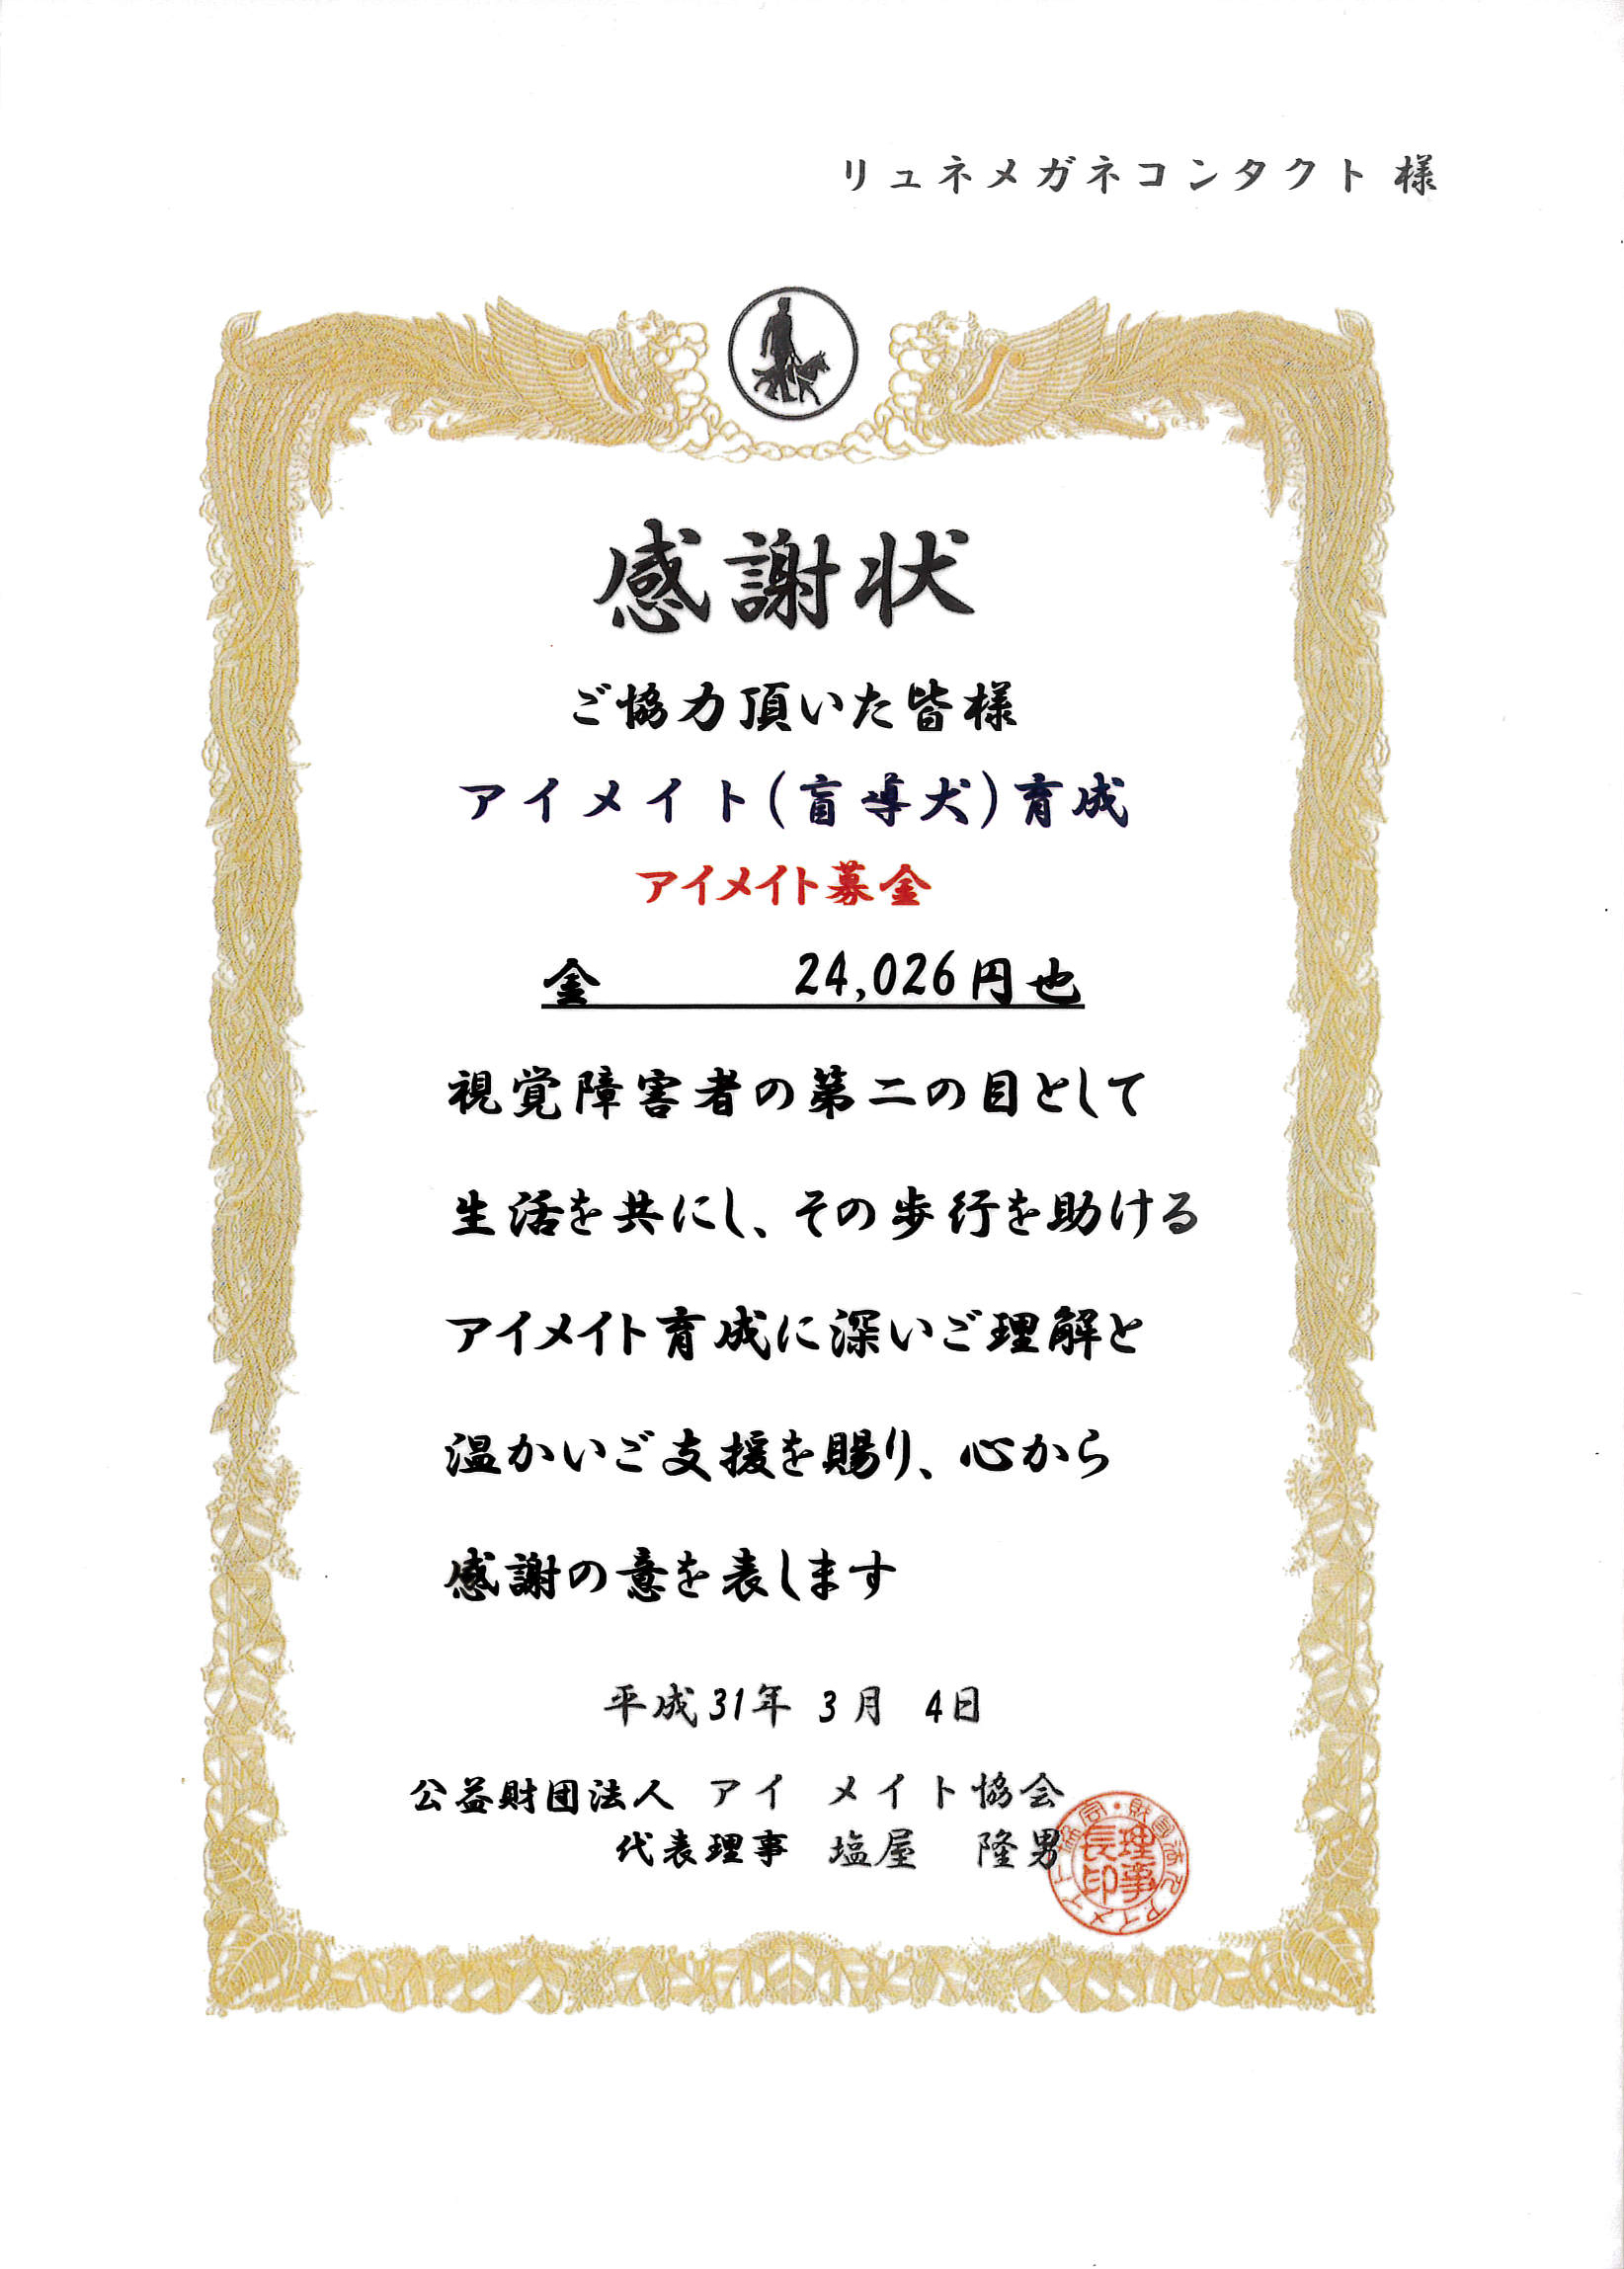 リュネメガネコンタクト 様
感謝状
ご協力頂いた皆様
アイメイト(盲導犬)育成
アイメイト募金
金 24,026円也
視覚障害者の第二の目として
生活を共にし、その歩行を助ける
アイメイト育成に深いご理解と
温かいご支援を賜り、心から
感謝の意を表します
平成31年 3月 4日
公益財団法人 アイ メイト協会
代表理事 塩屋 隆男
理事長印